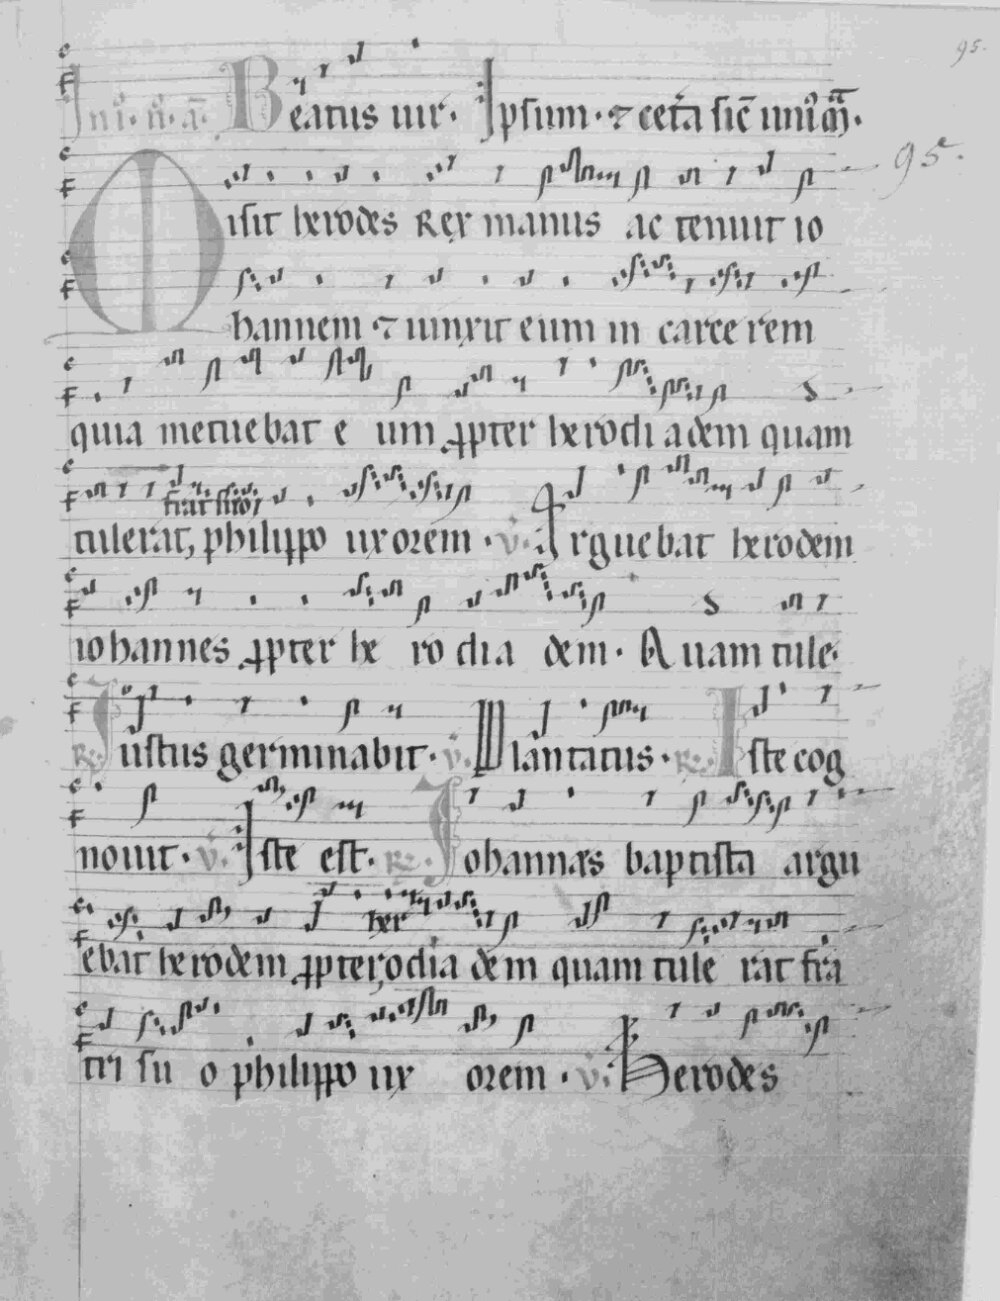 95.
In .i. ń. a. Beatus uir. Ipsum. ⁊ cet̃a sic̃ uniꝰ m̃.
95.
Misit herodes Rex manus ac tenuit io
hannem ⁊ uinxit eum in carce rem
quia metuebat e um ꝓpter herodi adem quam
frat̃ suoꝛ
tulerat, philippo uxorem . v̓. Arguebat herodem
iohannes ꝓpter he ro dia dem. Quam tule.
R. Iustus germinabit. v̓. Plantatus. R. Iste cog
nouit. v̓. Iste est. R. Iohannes baptista argu
her
ebat herodem ꝓpter, odia dem quam tule rat fra
tri su o philippo ux orem . v̓. Herodes